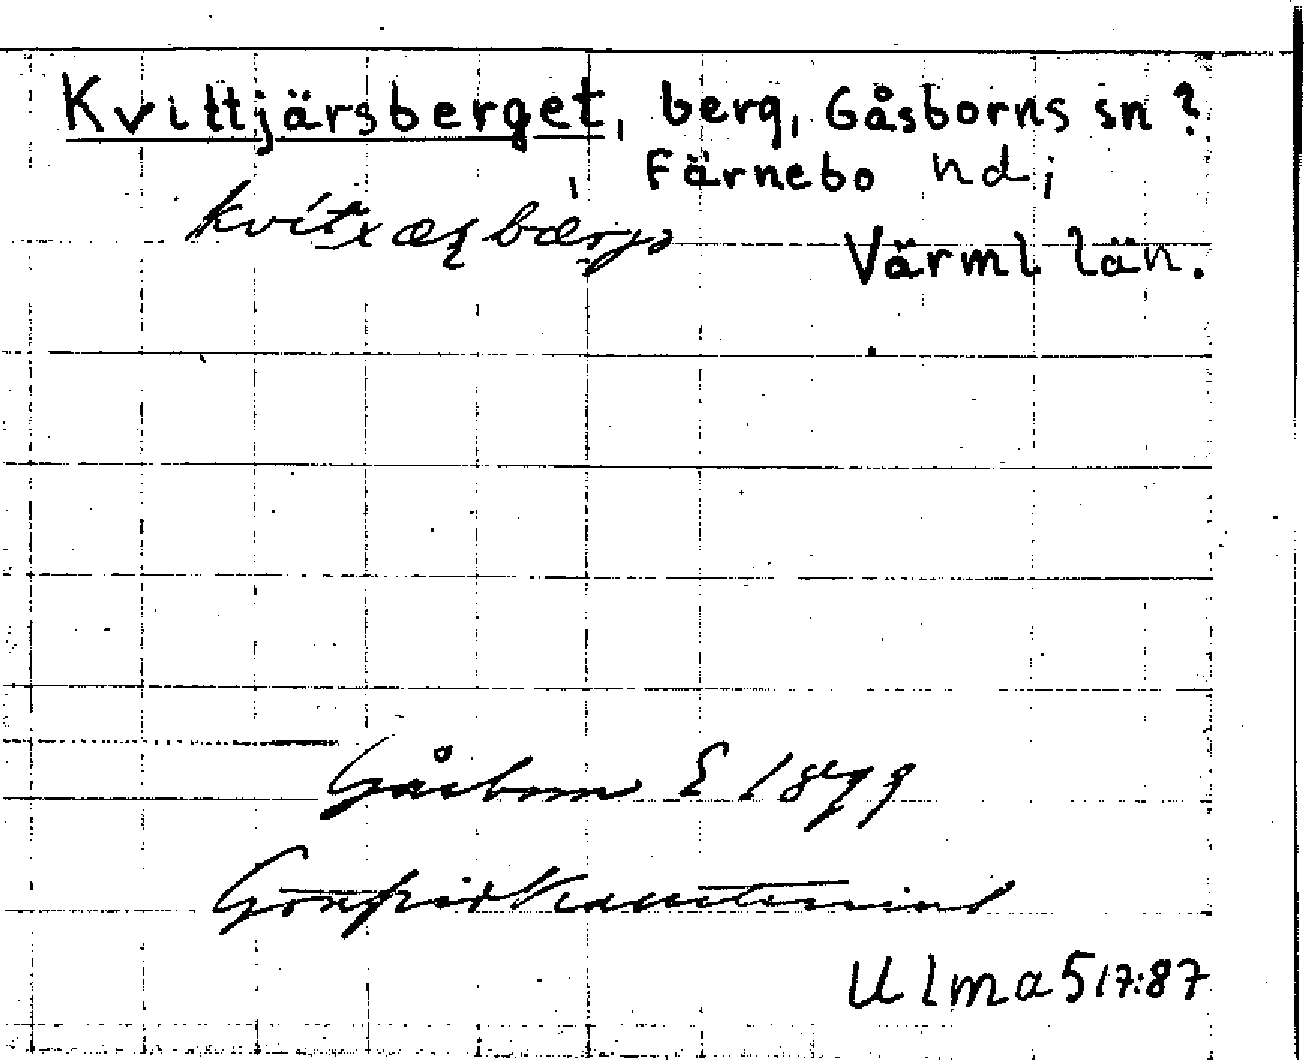 Kvittjärsberget, berg, Gåsborns sn?
Färnebo hd;
Värml. län.
Gåsborn E 1879
Gottfrid Kallstenius
Ulma 517:87